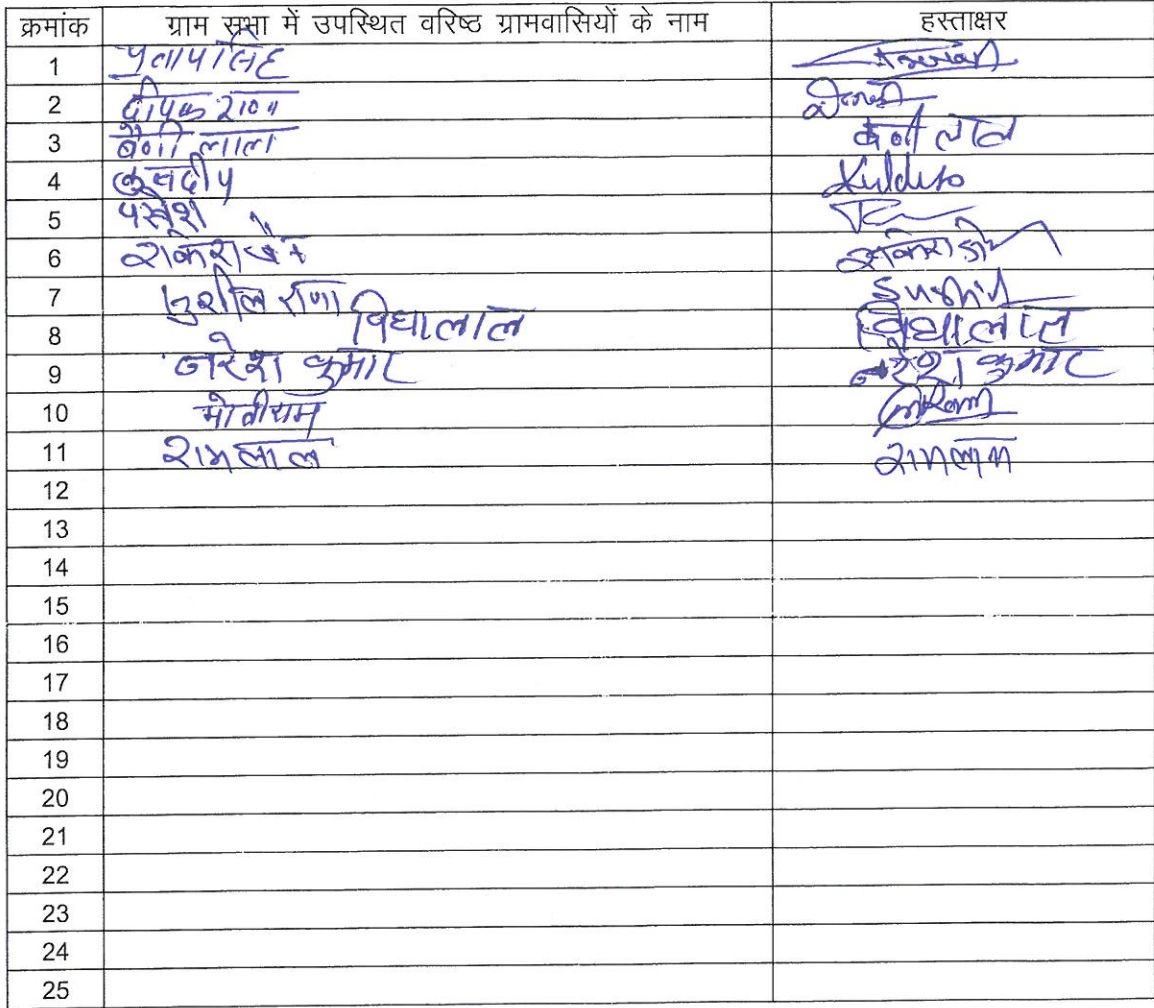 क्रमांक ग्राम सभा में उपस्थित वरिष्ठ ग्रामवासियों के नाम हस्ताक्षर
1 प्रतापसिंह
2 दीपक
3 बैणी लाल बैणी लाल
4 कुलदीप Kuldeep
5
6 राकेश राकेश
7 सुशील राणा Sushil
8 विद्यालाल विद्यालाल
9 नरेश कुमार नरेश कुमार
10 मोतीराम
11 रामलाल रामलाल
12
13
14
15
16
17
18
19
20
21
22
23
24
25